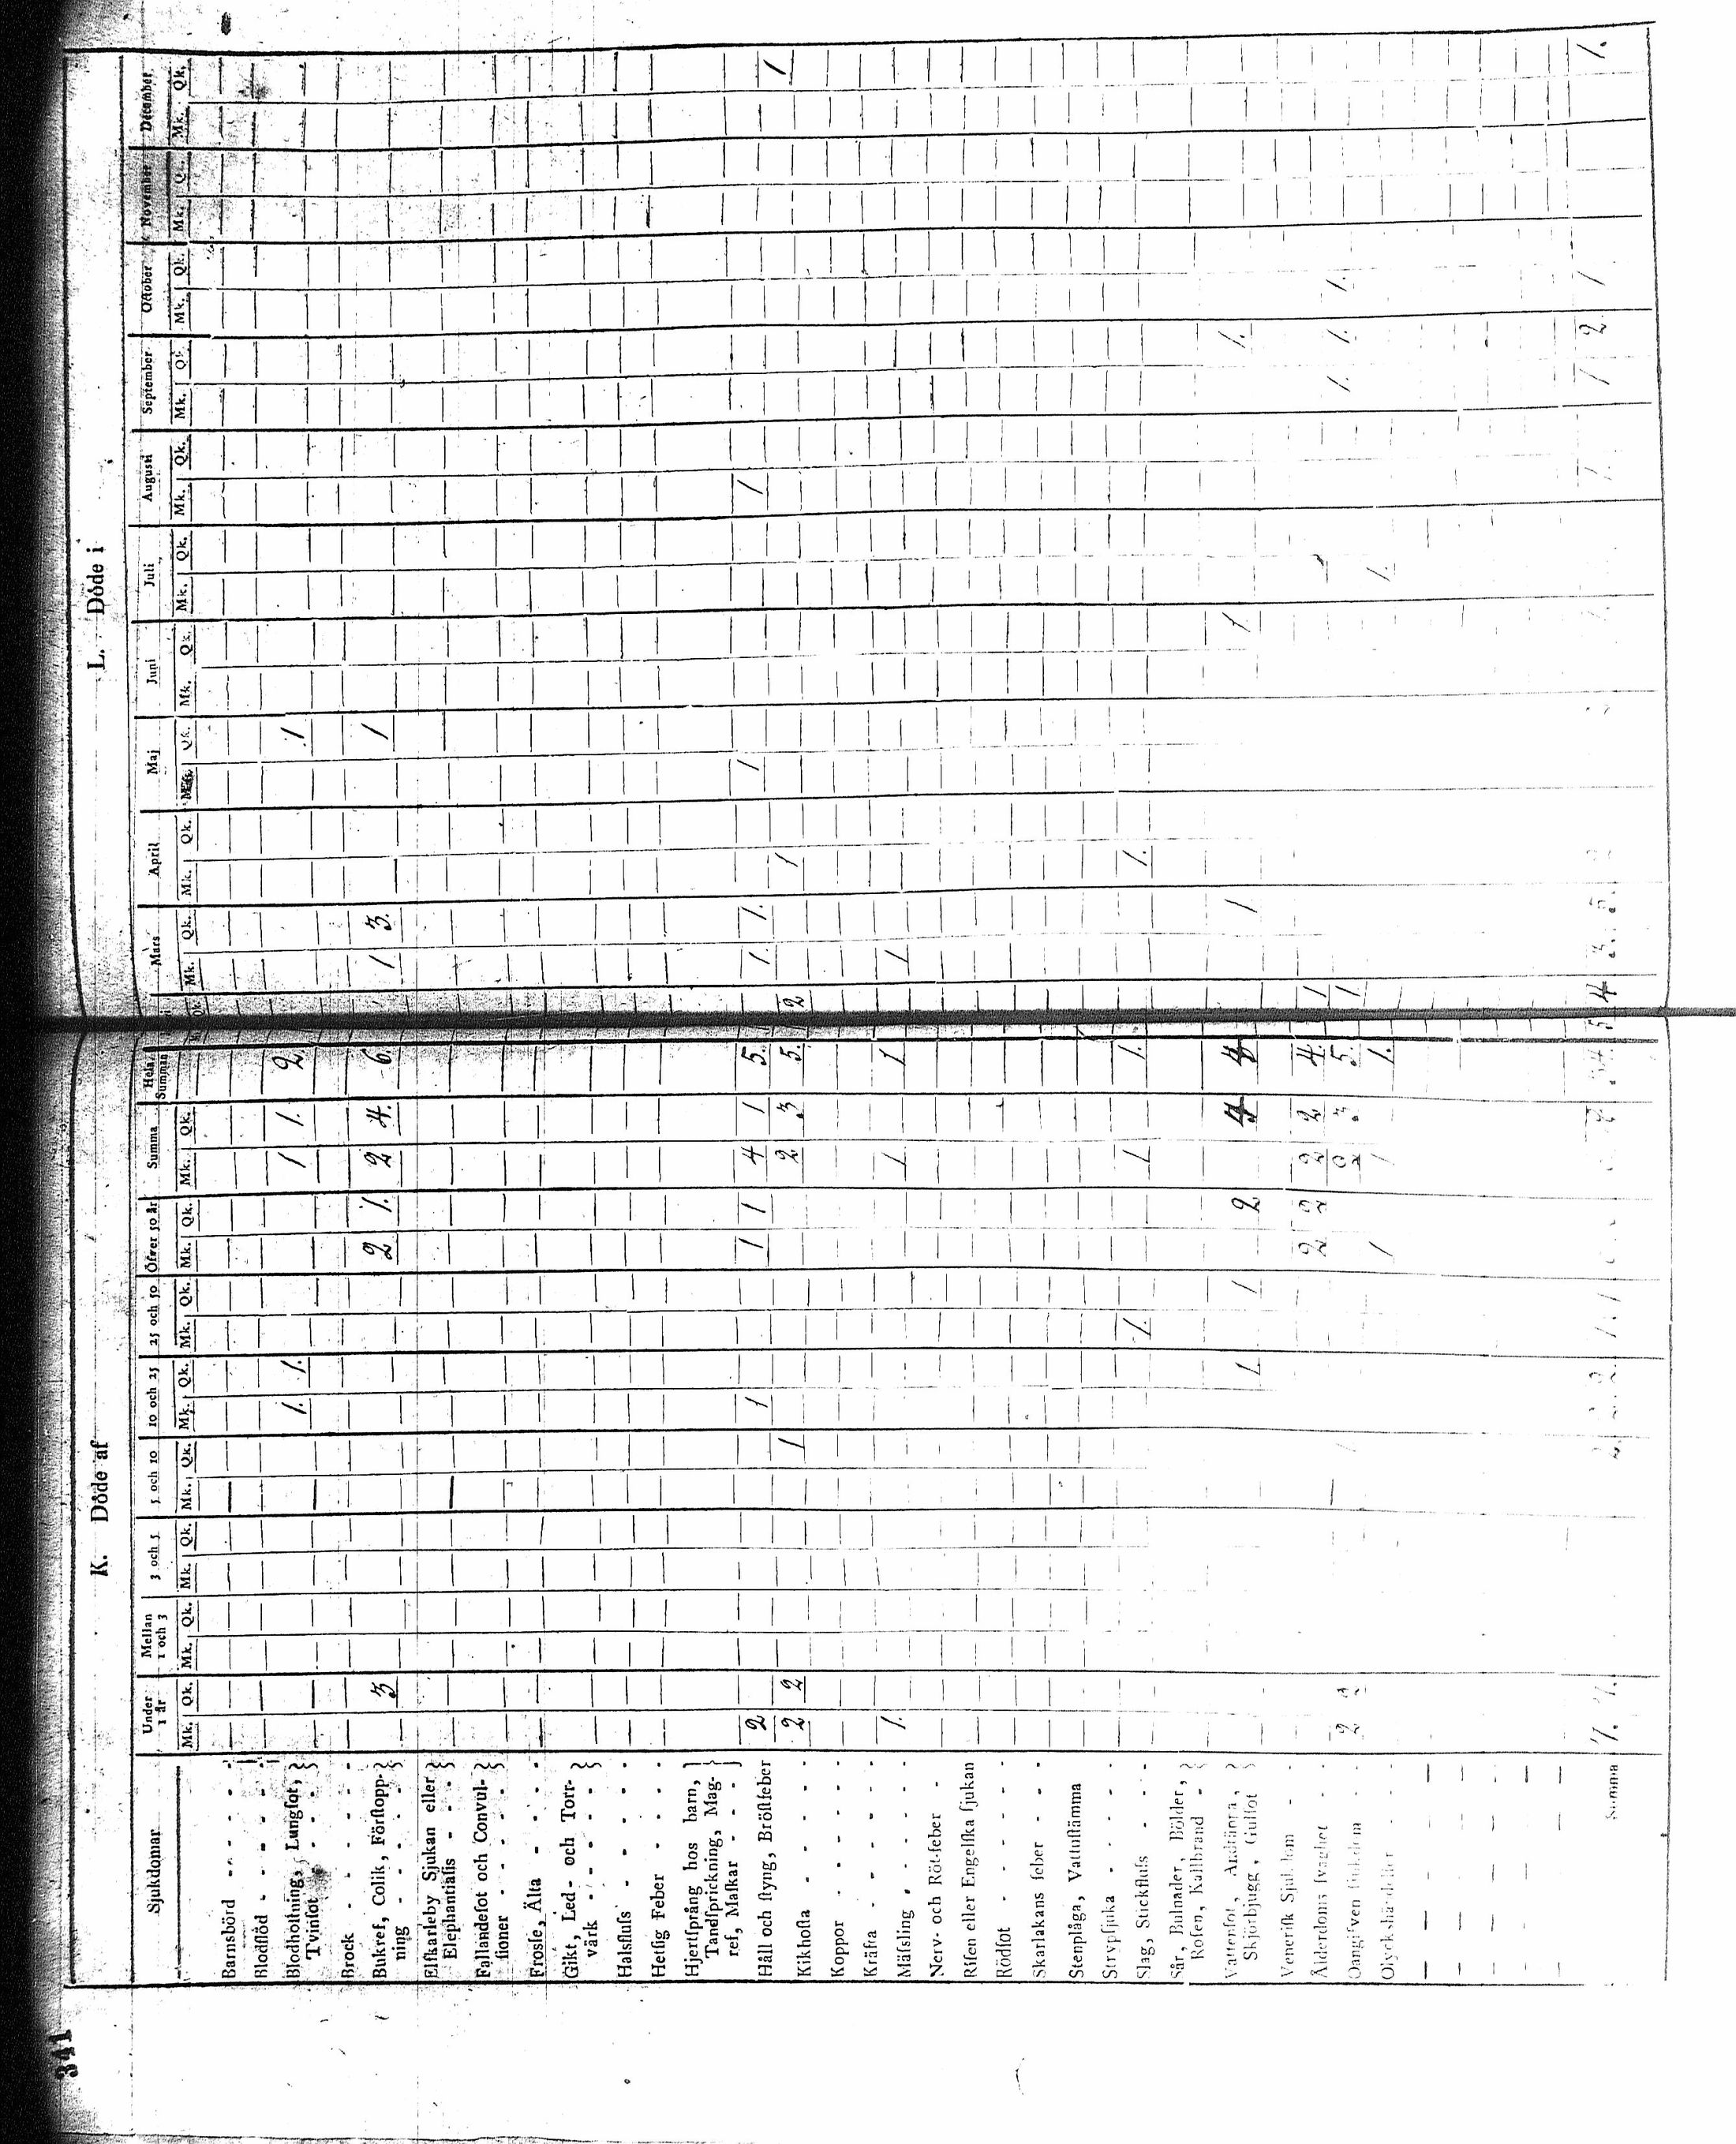 341
K. Döde af
L. Döde i
Sjukdomar Under 1 år Mellan 1 och 3 3 och 5 5 och 10 10 och 25 25 och 50 Öfver 50 år Summa Hela Summan Mars April Maj Juni Juli Augusti September Oktober November December
Mk. Qk. Mk. Qk. Mk. Qk. Mk. Qk. Mk. Qk. Mk. Qk. Mk. Qk. Mk. Qk. Qk Mk. Qk. Mk. Qk. Mk. Qk. Mk. Qk. Mk. Qk. Mk. Qk. Mk. Qk. Mk. Qk. Mk. Qk. Mk. Qk.
Barnsbörd
Blodſtöd
Blodhoſtning, Lungſot, 1. 1. 1 1. 2 1
Tvinſot
Brock
Bukref, Colik, Förſtopp- 3 2 1. 2 4. 6. 1 3. 1
ning
Elfkarleby Sjukan eller
Elephantiaſis
Fallandeſot och Convul-
ſioner
Froſſe, Älta
Gikt, Led- och Torr-
värk
Halsfluſs
Hetſig Feber
Hjertſprång hos barn,
Tandſprickning, Mag-
ref, Maſkar
Håll och ſtyng, Bröſtfeber 2 1 1 1 4 1 5. 1. 1. 1 1
Kikhoſta 2 2 1 2 3 5. 2 1 1
Koppor
Kräfta
Mäſsling 1. 1 1 1.
Nerv- och Rötfeber
Riſen eller Engelſka ſjukan
Rödſot
Skarlakans feber
Stenplåga, Vattuſtämma
Strypſjuka
Slag, Stickfluſs 1. 1 1. 1.
Sår, Bulnader, Bölder,
Roſen, Kallbrand
Vattenſot, Andtäppa, 1 1 2 4 4 1 1 1.
Skjörbjugg, Gulſot
Veneriſk Sjukdom
Ålderdoms ſvaghet 2 2 2 2 4. 1
Oangifven ſjukdom 2 2 3 5. 1 1. 1. 1.
Olyckshändelſer 1 1 1. 1.
Summa 7. 7. 4 1 2 1 1.